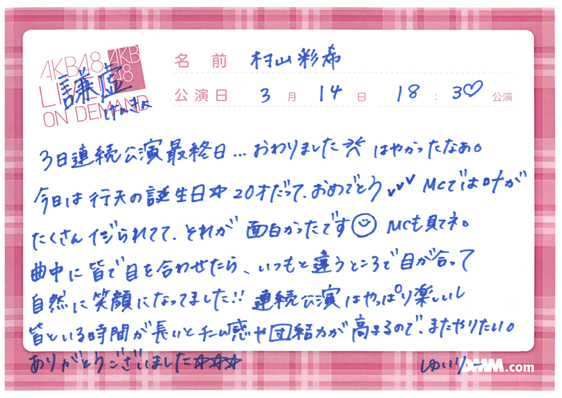 AKB48
LIVE!!
ON DEMAND
AKB
48
謙虚
けんきょ
名前 村山彩希
公演日 3月14日 18:30♡公演
3日連続公演最終日…おわりました はやかったなぁ。
今日は行天の誕生日☆ 20才だって、おめでとう✓✓✓ MCでは
たくさんイジられてて、それが面白かったです☺ MCも見てネ。
曲中に皆で目を合わせたら、いつもと違うところで目が合って
自然に笑顔になってました!! 連続公演はやっぱり楽しいし
皆といる時間が長いとチーム感や団結力が高まるので、またやりたい。
ありがとうございました☆☆☆ ゆいりー
DMM.com